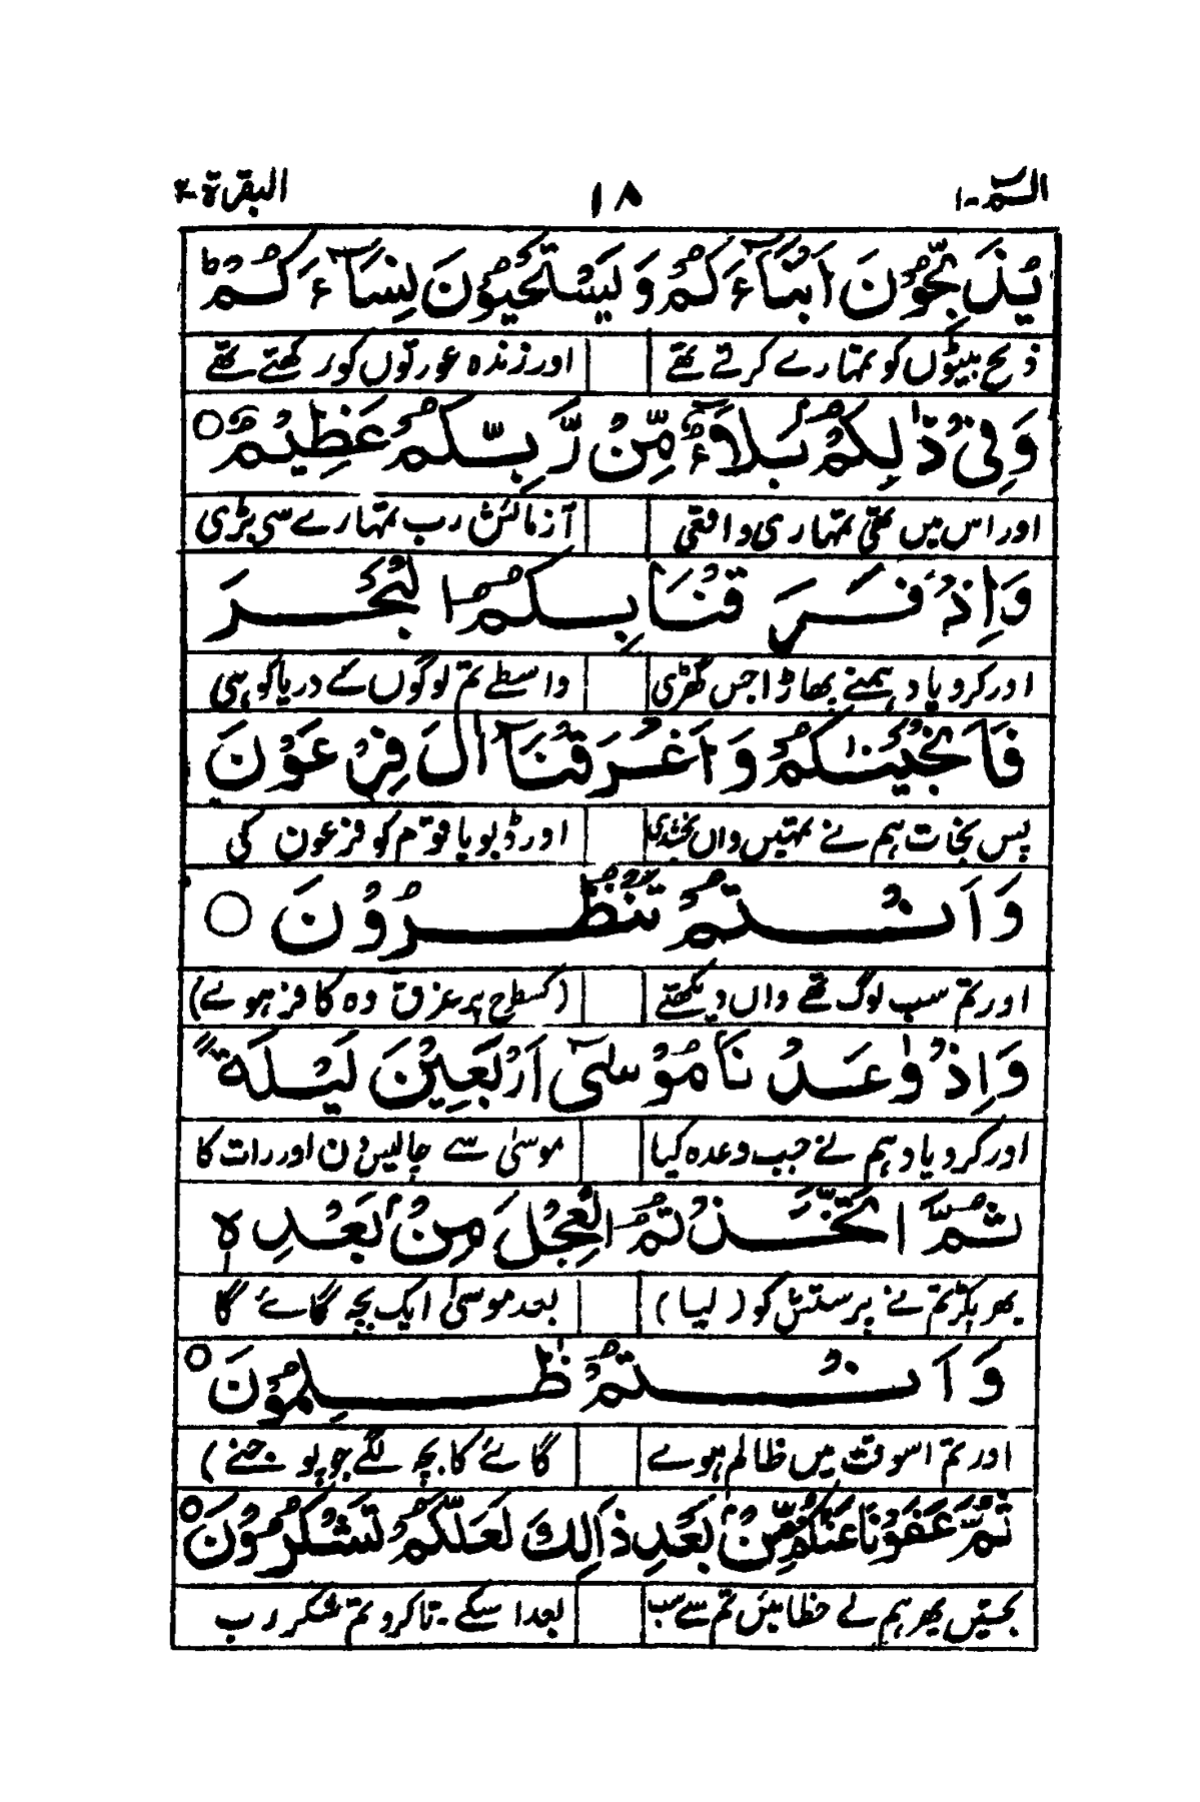 الٓمّٓ۔۱ ۱۸ البقرة۔۲
يُذَبِّحُوْنَ اَبْنَآءَكُمْ وَيَسْتَحْيُوْنَ نِسَآءَكُمْ ط
ذبح بیٹوں کو تمہارے کرتے تھے اور زندہ عورتوں کو رکھتے تھے
وَفِيْ ذٰلِكُمْ بَلَآءٌ مِّنْ رَّبِّكُمْ عَظِيْمٌ ○
اور اس میں تھی تمہاری واقعی آزمائش رب تمہارے سی بڑی
وَاِذْ فَرَقْنَا بِكُمُ الْبَحْرَ
اور کرو یاد ہمنے پھاڑا جس گھڑی واسطے تم لوگوں کے دریا کو ہی
فَاَنْجَيْنٰكُمْ وَاَغْرَقْنَآ اٰلَ فِرْعَوْنَ
پس نجات ہم نے تمہیں واں بخشدی اور ڈبویا قوم کو فرعون کی
وَاَنْتُمْ تَنْظُرُوْنَ ○
اور تم سب لوگ تھے واں دیکھتے (کسطرح پر غرق وہ کافر ہوے)
وَاِذْ وٰعَدْنَا مُوْسٰٓى اَرْبَعِيْنَ لَيْلَةً
اور کرو یاد ہم نے جب وعدہ کیا موسیٰ سے چالیس دن اور رات کا
ثُمَّ اتَّخَذْتُمُ الْعِجْلَ مِنْۢ بَعْدِهٖ
پھر پکڑ تم نے پرستش کو (لیا) بعد موسیٰ ایک بچہ گائے گا
وَاَنْتُمْ ظٰلِمُوْنَ ○
اور تم اسوقت میں ظالم ہوے گائے کا بچہ لگے جو پوجنے)
ثُمَّ عَفَوْنَا عَنْكُمْ مِّنْۢ بَعْدِ ذٰلِكَ لَعَلَّكُمْ تَشْكُرُوْنَ ○
بخشیں پھر ہم نے خطائیں تم سے سب بعد اسکے۔ تا کرو تم شکر رب